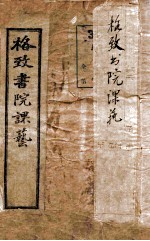 格致书院课艺
格致書院課藝